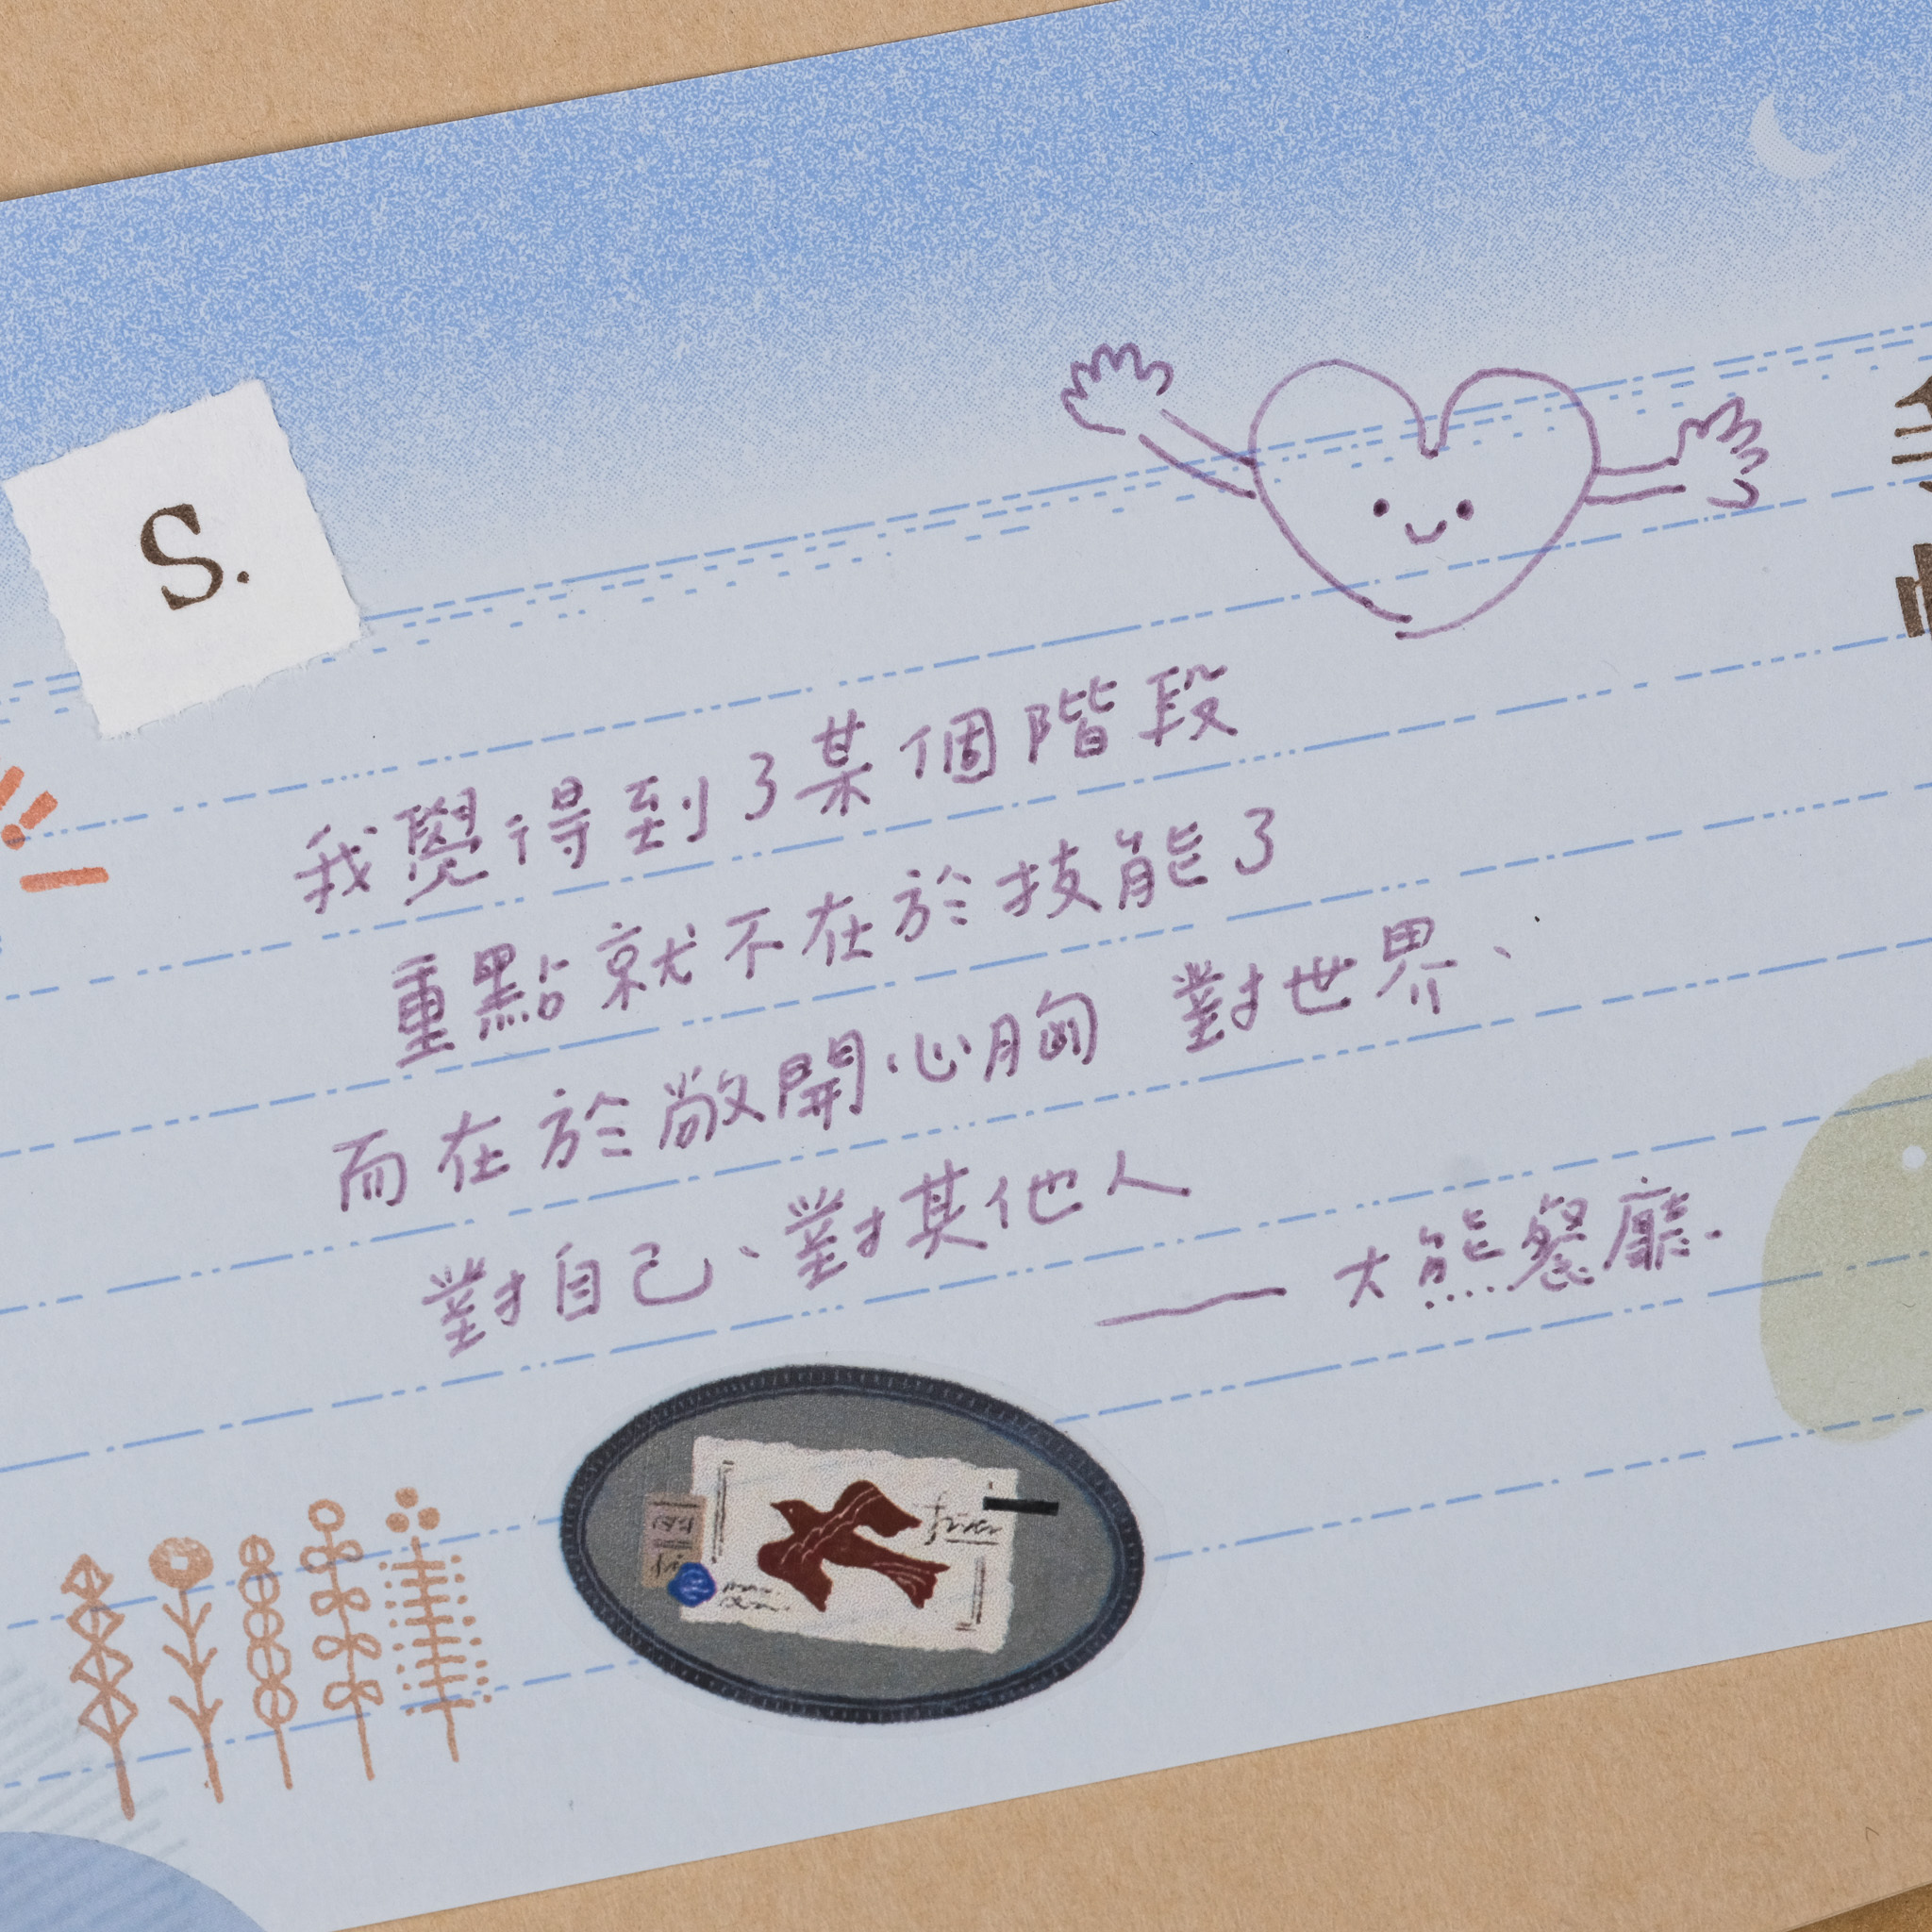 S.
我覺得到了某個階段
重點就不在於技能了
而在於敞開心胸 對世界、
對自己、對其他人
—— 大熊餐廳.